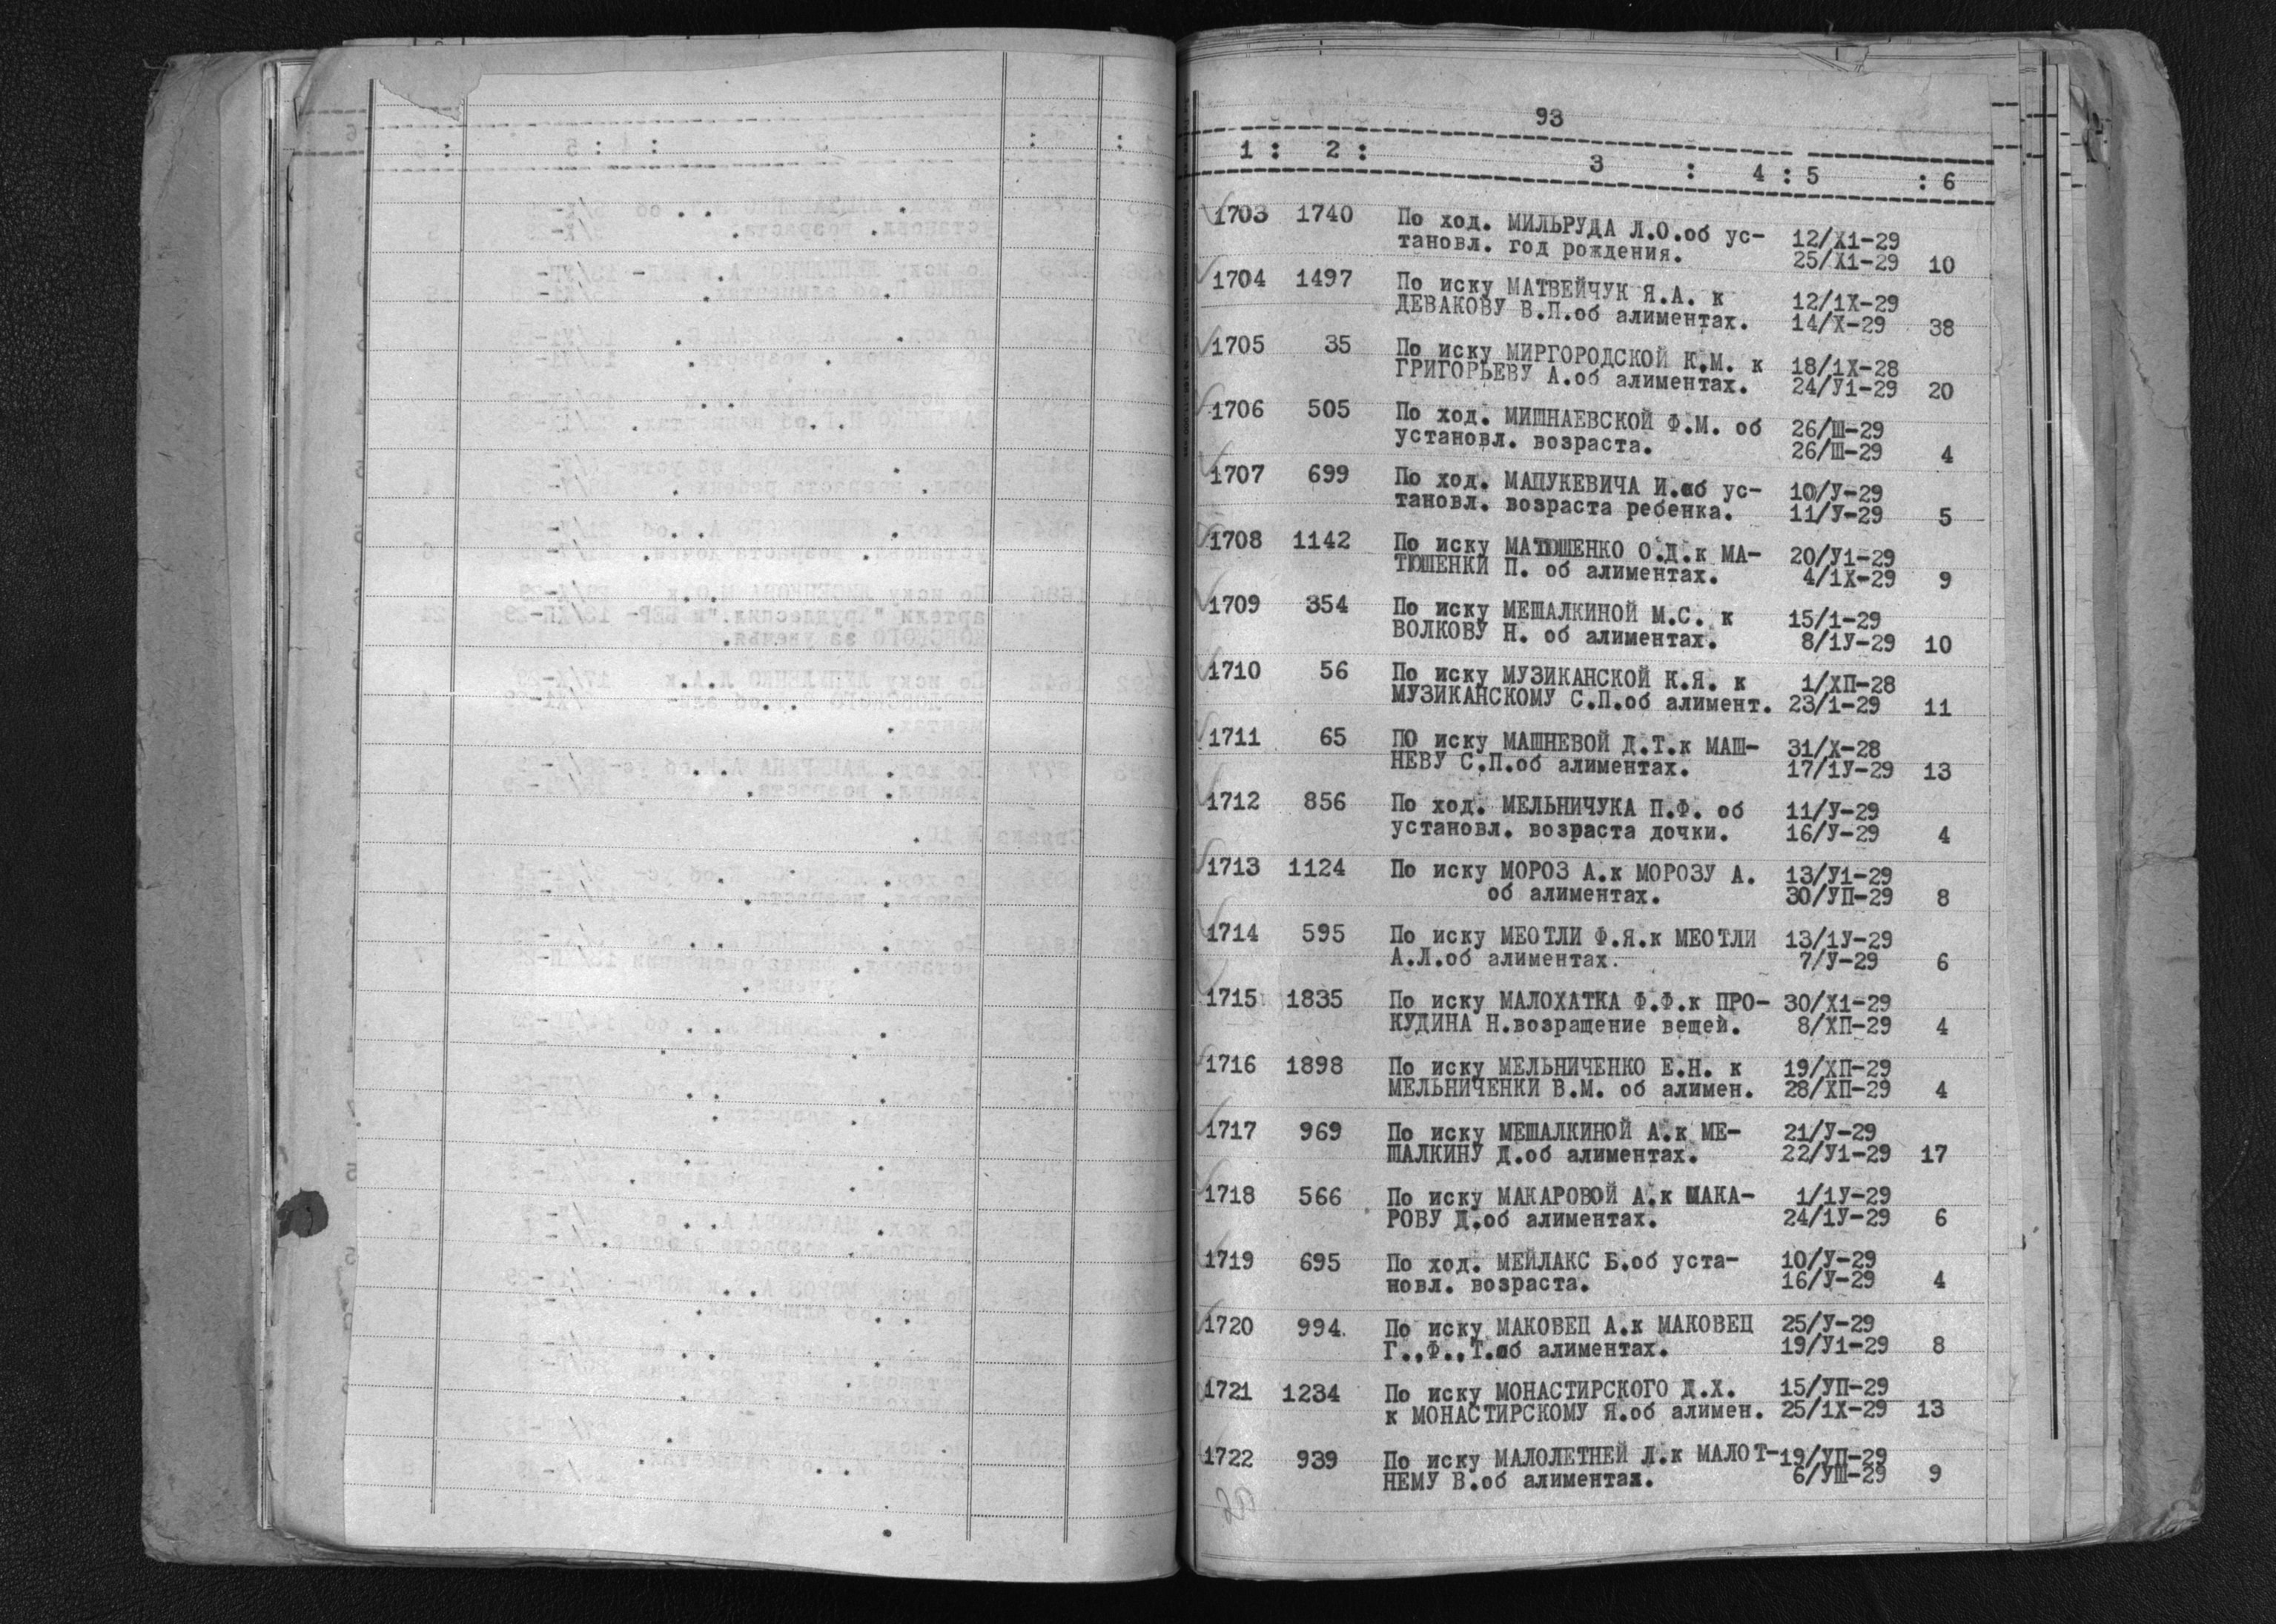 93
1 : 2 : 3 : 4 : 5 : 6
1703 1740 По ход. МИЛЬРУДА Л.О.об ус- 12/X1-29
тановл. год рождения. 25/X1-29 10
1704 1497 По иску МАТВЕЙЧУК Я.А. к 12/1X-29
ДЕВАКОВУ В.П.об алиментах. 14/X-29 38
1705 35 По иску МИРГОРОДСКОЙ К.М. к 18/1X-28
ГРИГОРЬЕВУ А.об алиментах. 24/У1-29 20
1706 505 По ход. МИШНАЕВСКОЙ Ф.М. об 26/Ш-29
установл. возраста. 26/Ш-29 4
1707 699 По ход. МАЦУКЕВИЧА И.об ус- 10/У-29
тановл. возраста ребенка. 11/У-29 5
1708 1142 По иску МАТЮШЕНКО О.Д.к МА- 20/У1-29
ТЮШЕНКИ П. об алиментах. 4/1X-29 9
1709 354 По иску МЕШАЛКИНОЙ М.С. к 15/1-29
ВОЛКОВУ Н. об алиментах. 8/1У-29 10
1710 56 По иску МУЗИКАНСКОЙ К.Я. к 1/ХП-28
МУЗИКАНСКОМУ С.П.об алимент. 23/1-29 11
1711 65 ПО иску МАШНЕВОЙ Д.Т.к МАШ- 31/X-28
НЕВУ С.П.об алиментах. 17/1У-29 13
1712 856 По ход. МЕЛЬНИЧУКА П.Ф. об 11/У-29
установл. возраста дочки. 16/У-29 4
1713 1124 По иску МОРОЗ А.к МОРОЗУ А. 13/У1-29
об алиментах. 30/УП-29 8
1714 595 По иску МЕОТЛИ Ф.Я.к МЕОТЛИ 13/1У-29
А.Л.об алиментах. 7/У-29 6
1715 1835 По иску МАЛОХАТКА Ф.Ф.к ПРО- 30/X1-29
КУДИНА Н.возращение вещей. 8/ХП-29 4
1716 1898 По иску МЕЛЬНИЧЕНКО Е.Н. к 19/ХП-29
МЕЛЬНИЧЕНКИ В.М. об алимен. 28/ХП-29 4
1717 969 По иску МЕШАЛКИНОЙ А.к МЕ- 21/У-29
ШАЛКИНУ Д.об алиментах. 22/У1-29 17
1718 566 По иску МАКАРОВОЙ А.к МАКА- 1/1У-29
РОВУ Д.об алиментах. 24/1У-29 6
1719 695 По ход. МЕЙЛАКС Б.об уста- 10/У-29
новл. возраста. 16/У-29 4
1720 994. По иску МАКОВЕЦ А.к МАКОВЕЦ 25/У-29
Г.,Ф.,Т.об алиментах. 19/У1-29 8
1721 1234 По иску МОНАСТИРСКОГО Д.Х. 15/УП-29
к МОНАСТИРСКОМУ Я.об алимен. 25/1X-29 13
1722 939 По иску МАЛОЛЕТНЕЙ Л.к МАЛОТ-19/УП-29
НЕМУ В.об алиментах. 6/УШ-29 9